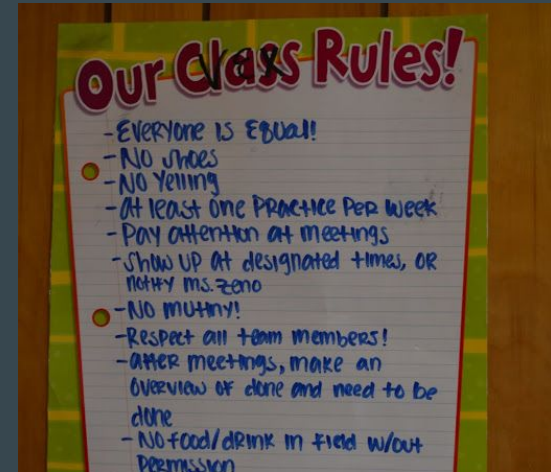 Our Class Rules!
VEX
-Everyone is Equal!
-No shoes
-No Yelling
-At least one Practice Per week
-Pay attention at meetings
-Show up at designated times, OR
notify ms. Zeno
-No mutiny!
-Respect all team members!
-after meetings, make an
overview of done and need to be
done
-No food/drink in field w/out
Permission